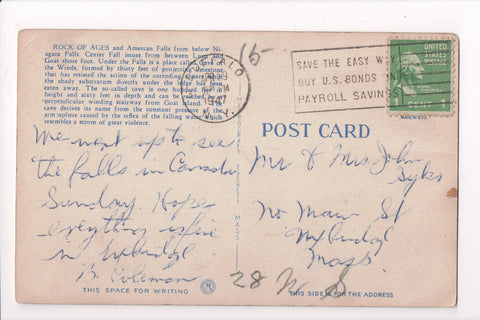 ROCK OF AGES and American Falls from below Ni-
agara Falls. Center Fall issues from between Luna and
Goat shore foot. Under the Falls is a place called Cave of
the Winds, formed by thirty feet of projecting limestone
that has resisted the action of the corroding waters, while
the shaly substratum directly under the ledge has been
eaten away. The so-called cave is one hundred feet in
height and sixty feet in depth and can be reached by
perpendicular winding stairway from Goat Island. The
cave derives its name from the constant pressure of the
atmosphere caused by the reflex of the falling water which
resembles a storm of great violence.
15
BUFFALO
1947
N.Y.
SAVE THE EASY WAY
BUY U.S. BONDS
PAYROLL SAVINGS
UNITED
STATES
POSTAGE
CENT 1
POST CARD
We went up to see
the falls in Canada
Sunday. Hope
everything is fine
in Uxbridge
B. Coleman
Mr & Mrs John
Sykes
No Main St
Uxbridge
Mass
28 N S
THIS SPACE FOR WRITING
THIS SIDE IS FOR THE ADDRESS